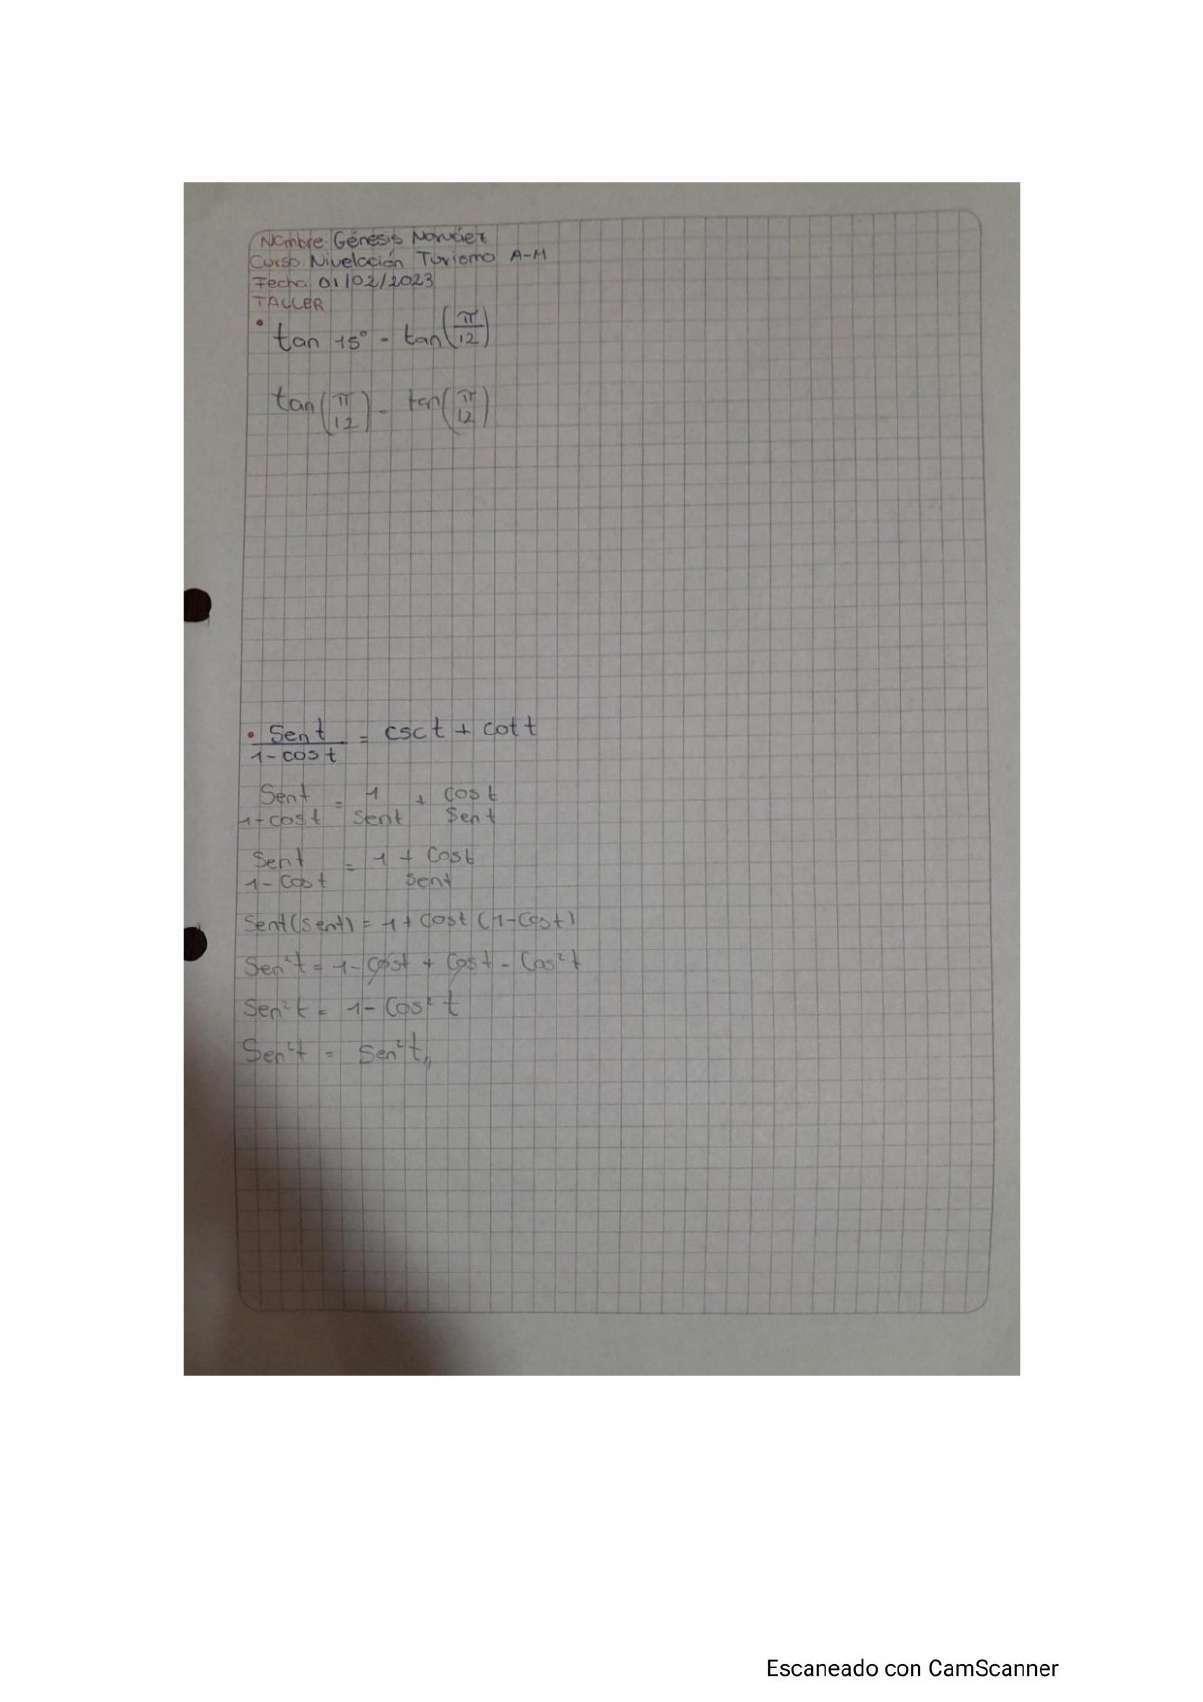 Nombre: Génesis
Curso: Nivelación Turismo A-M
Fecha: 01/02/2023
TALLER
• tan 15° = tan(π/12)
tan(π/12) = tan(π/12)
• Sen t / 1-cos t = csc t + cot t
Sent / 1-cost = 1 / Sent + cost / Sent
Sent / 1-Cost = 1 + Cost / Sent
Sent(Sent) = 1+Cost (1-Cost)
Sen²t = 1-Cost + Cost - Cos²t
Sen²t = 1- Cos² t
Sen²t = Sen²t,,
Escaneado con CamScanner